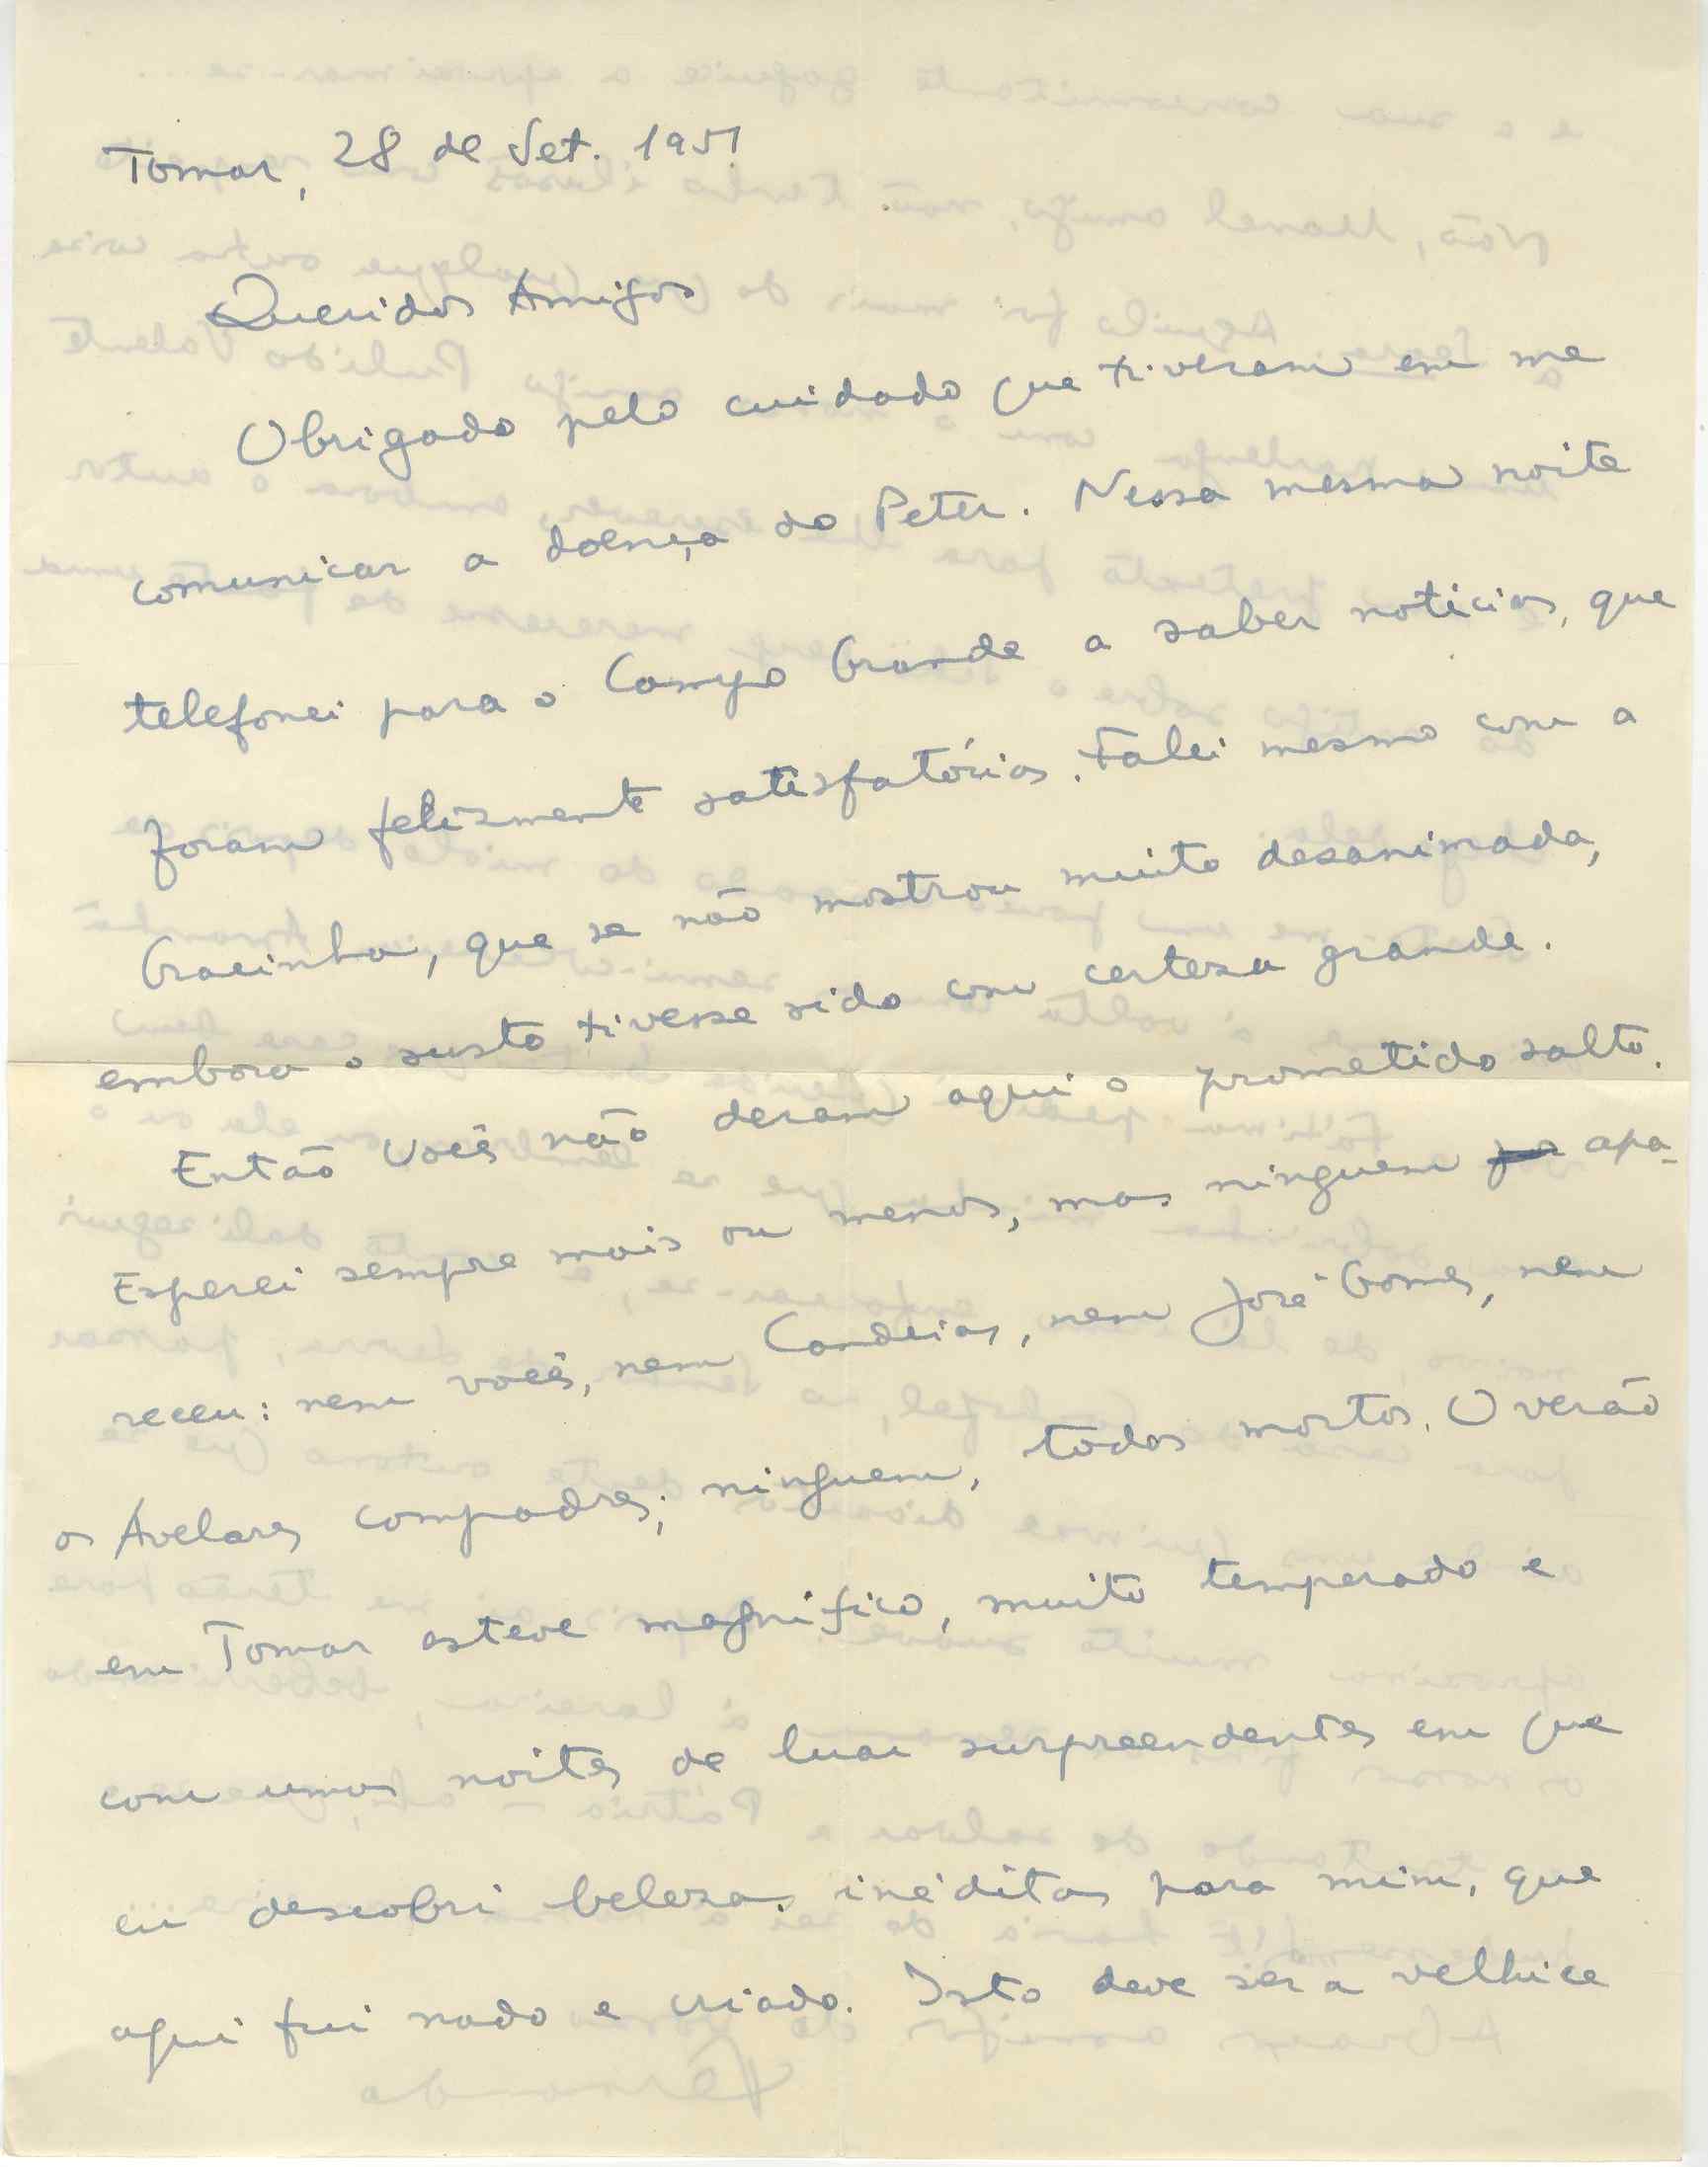 Tomar, 28 de Set. 1951
Queridos Amigos
Obrigado pelo cuidado que tiveram em me
comunicar a doença do Peter. Nessa mesma noite
telefonei para o Campo Grande a saber notícias, que
foram felizmente satisfatórias. Falei mesmo com a
Gracinha, que se não mostrou muito desanimada,
embora o susto tivesse sido com certeza grande.
Então vocês não deram aqui o prometido salto.
Esperei sempre mais ou menos, mas ninguem apa-
receu: nem vocês, nem Candeias, nem José Gomes, nem
os Avelares compadres; ninguem, todos mortos. O verão
em Tomar esteve magnifico, muito temperado e
com umas noites de luar surpreendentes em que
eu descobri belezas inéditas para mim, que
aqui fui nado e criado. Isto deve ser a velhice